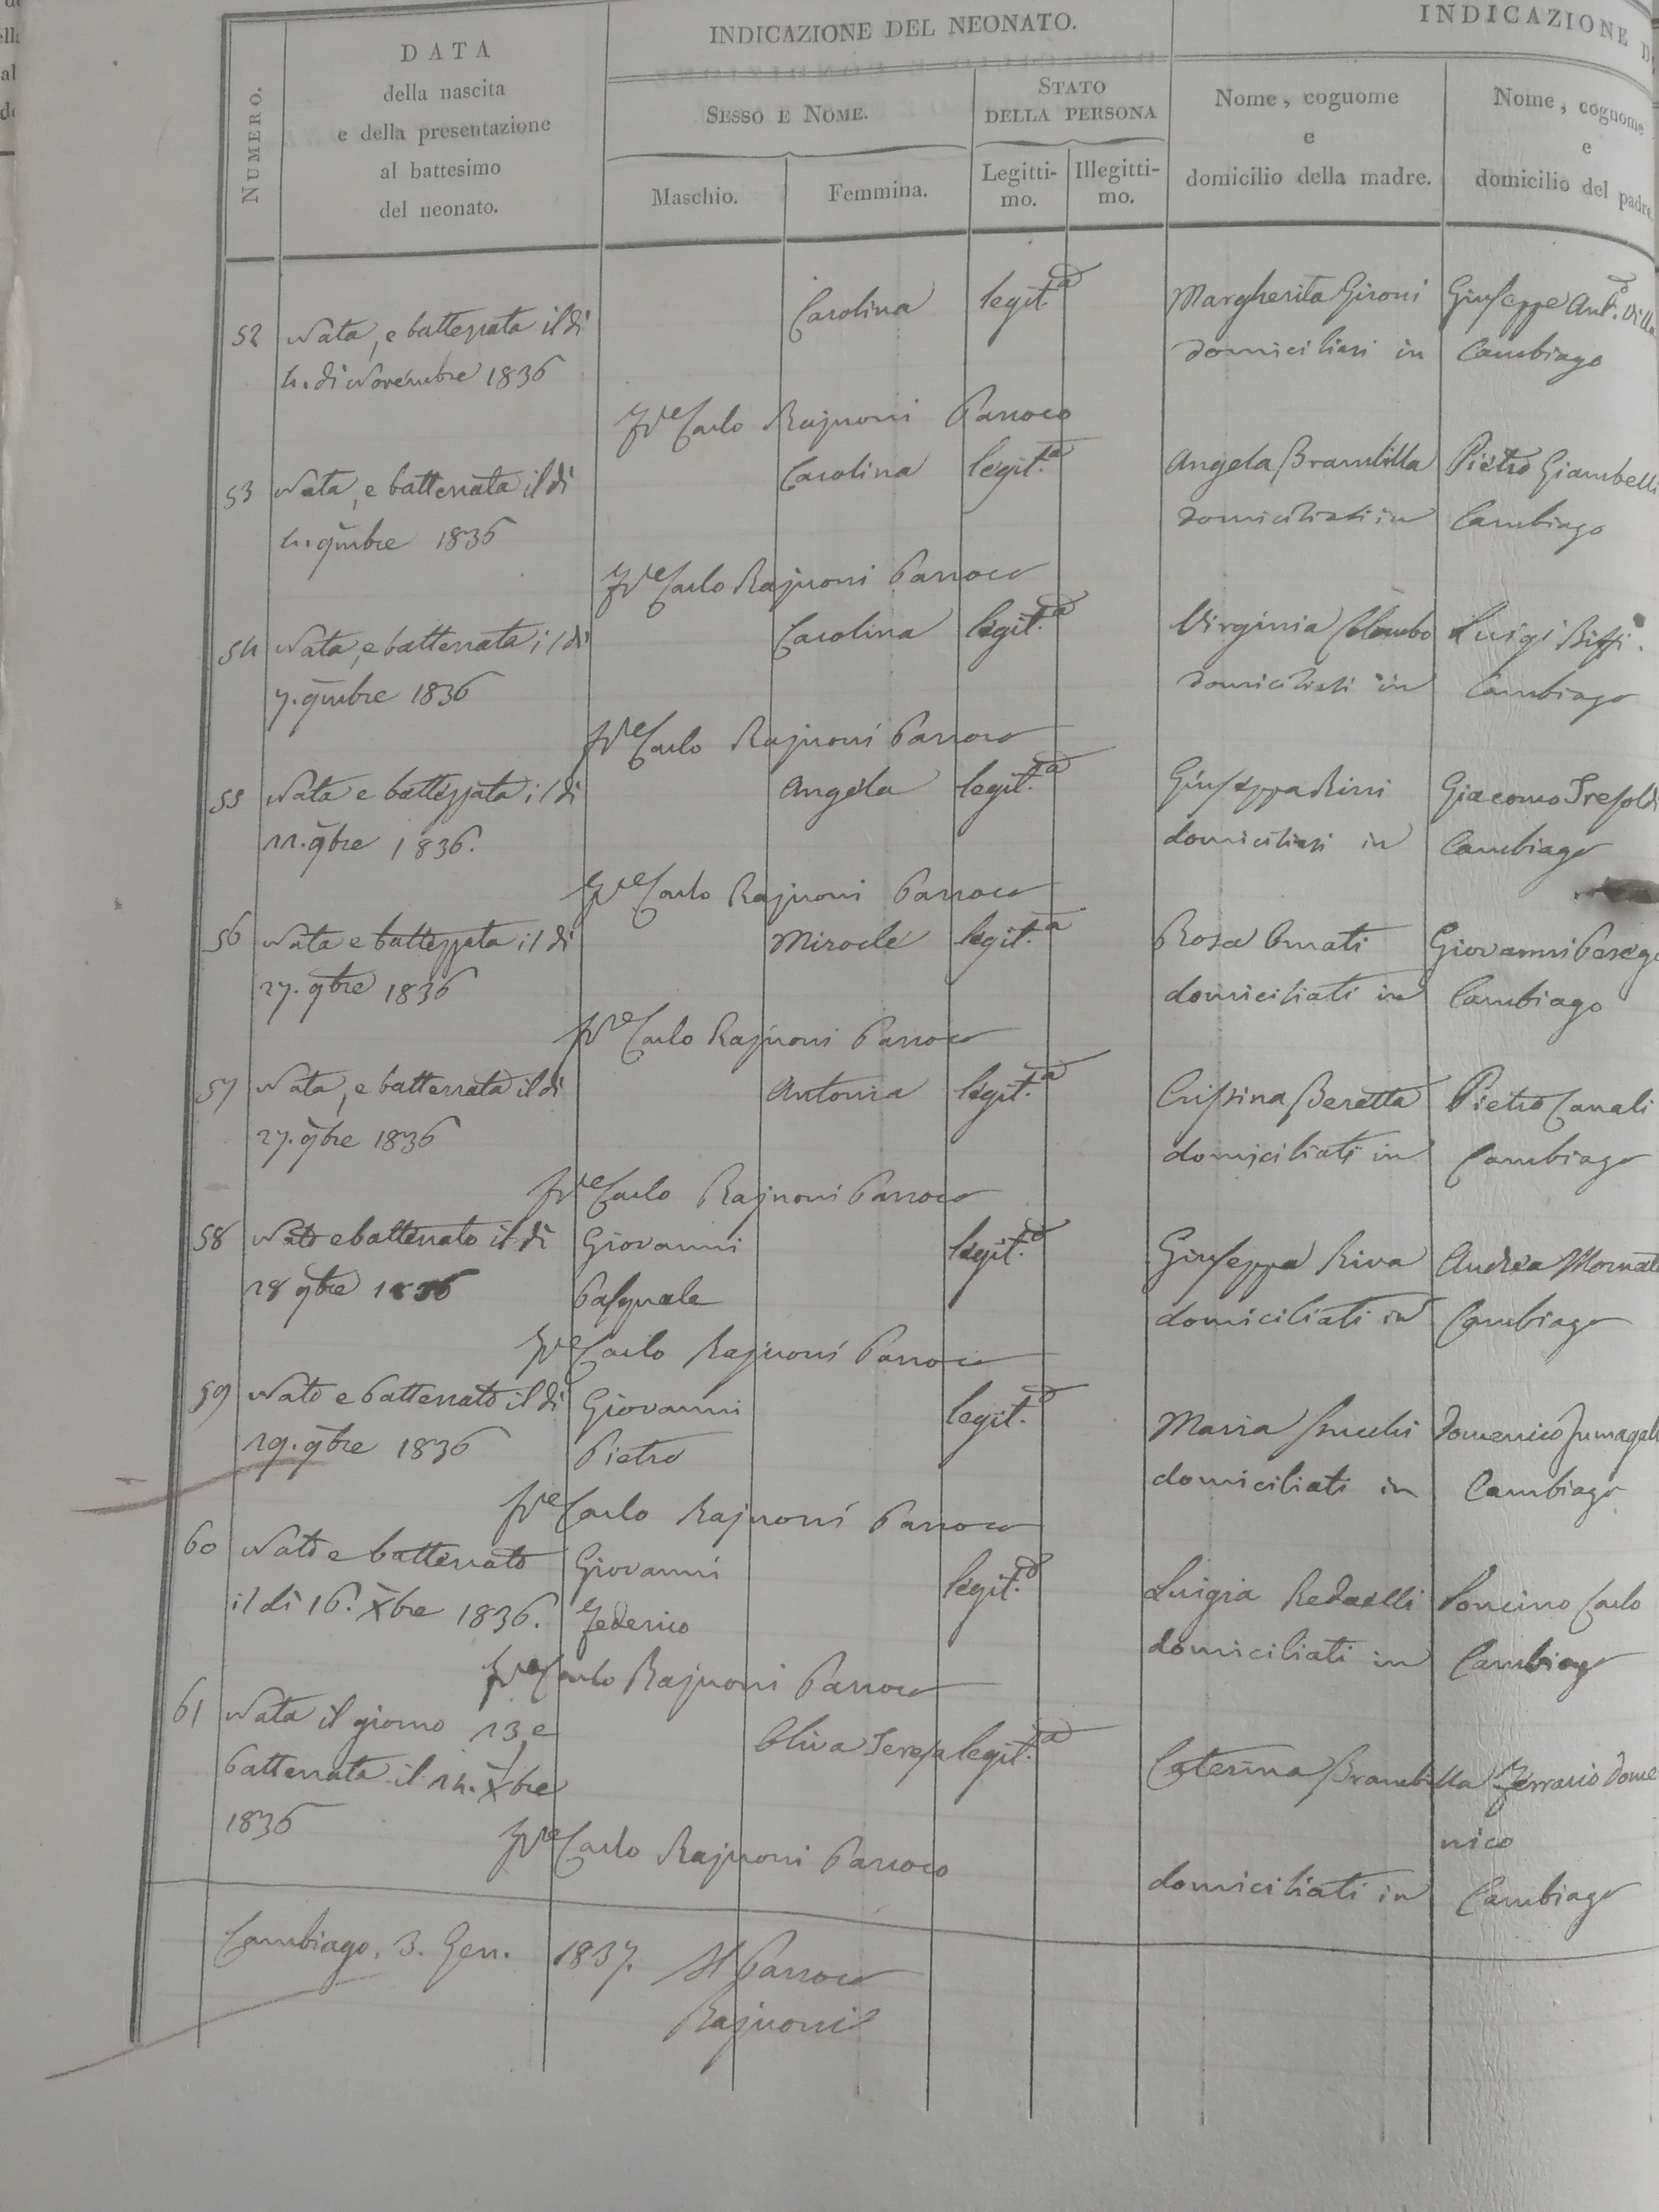 INDICAZIONE DEL NEONATO.
INDICAZIONE D
NUMERO.
DATA
della nascita
e della presentazione
al battesimo
del neonato.
SESSO E NOME.
STATO
DELLA PERSONA
Maschio.
Femmina.
Legitti-
mo.
Illegitti-
mo.
Nome, cognome
e
domicilio della madre.
Nome, cognome
e
domicilio del padre
52 Nata, e battezzata il di Carolina legit.a Margherita Gironi Giuseppe Ant.o Villa
4. di Novembre 1836 domiciliati in Cambiago
Pre Carlo Rajnoni Parroco
53 Nata, e battezzata il di Carolina legit.a Angela Brambilla Pietro Giambelli
4. 9mbre 1836 domiciliati in Cambiago
Pre Carlo Rajnoni Parroco
54 Nata, e battezzata il di Carolina legit.a Virginia Colombo Luigi Biffi.
7. 9mbre 1836 domiciliati in Cambiago
Pre Carlo Rajnoni Parroco
55 Nata e battezzata il di Angela legit.a Giuseppa Giacomo Tresoldi
11. 9bre 1836. domiciliati in Cambiago
Pre Carlo Rajnoni Parroco
56 Nata e battezzata il di legit.a Rosa Giovanni Perego
27. 9bre 1836 domiciliati in Cambiago
Pre Carlo Rajnoni Parroco
57 Nata, e battezzata il di Antonia legit.a Crissina Beretta Pietro Canali
27. 9bre 1836 domiciliati in Cambiago
Pre Carlo Rajnoni Parroco
58 Nato e battezzato il di Giovanni legit.o Giuseppa Riva Andrea Mornat
28 9bre 1836 Pasquale domiciliati in Cambiago
Pre Carlo Rajnoni Parroco
59 Nato e battezzato il di Giovanni legit.o Maria Domenico Fumagall
29. 9bre 1836 Pietro domiciliati in Cambiago
Pre Carlo Rajnoni Parroco
60 Nato e battezzato Giovanni legit.o Luigia Redaelli Poncino Carlo
il di 16. Xbre 1836. Federico domiciliati in Cambiago
Pre Carlo Rajnoni Parroco
61 Nata il giorno 23, e Oliva Teresa legit.a Caterina Brambilla Ferrario Dome
battezzata il 24. Xbre
1836 nico
Pre Carlo Rajnoni Parroco domiciliati in Cambiago
Cambiago. 3. Gen. 1837. Il Parroco
Rajnoni